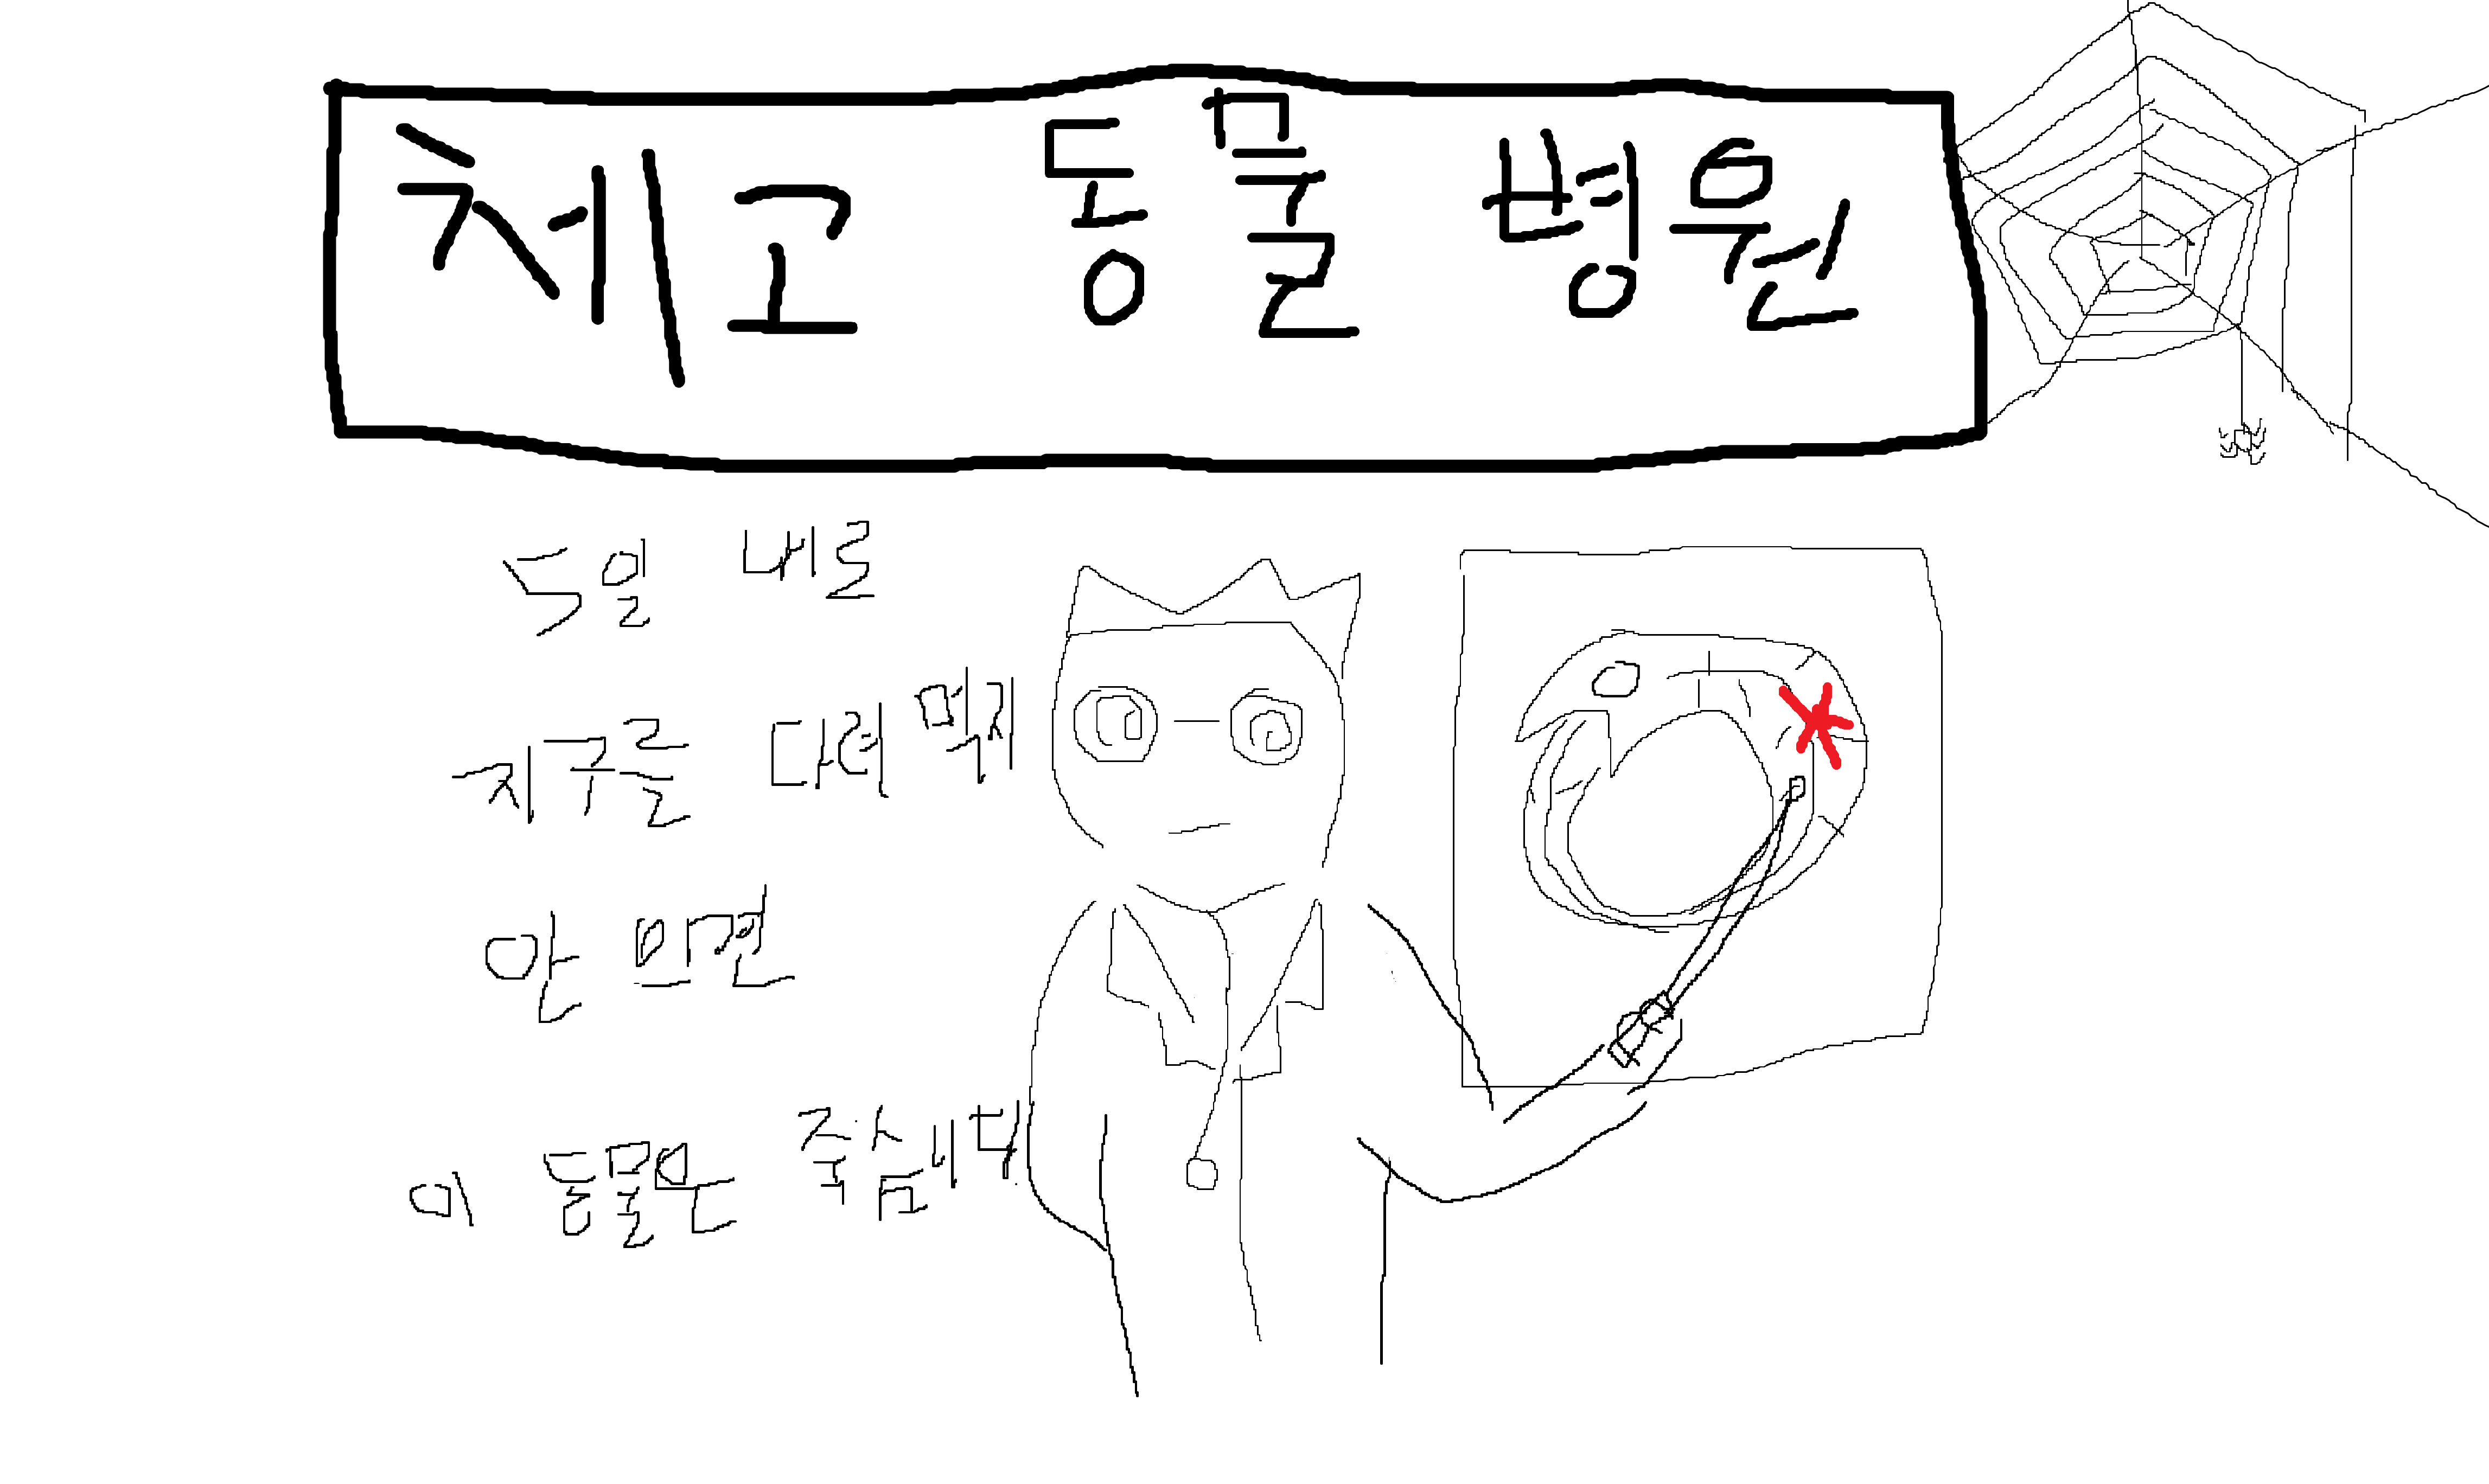 체고 동물 병원
5일 내로
지구를 다려 먹지
안 으면
이 동물은 죽습니다